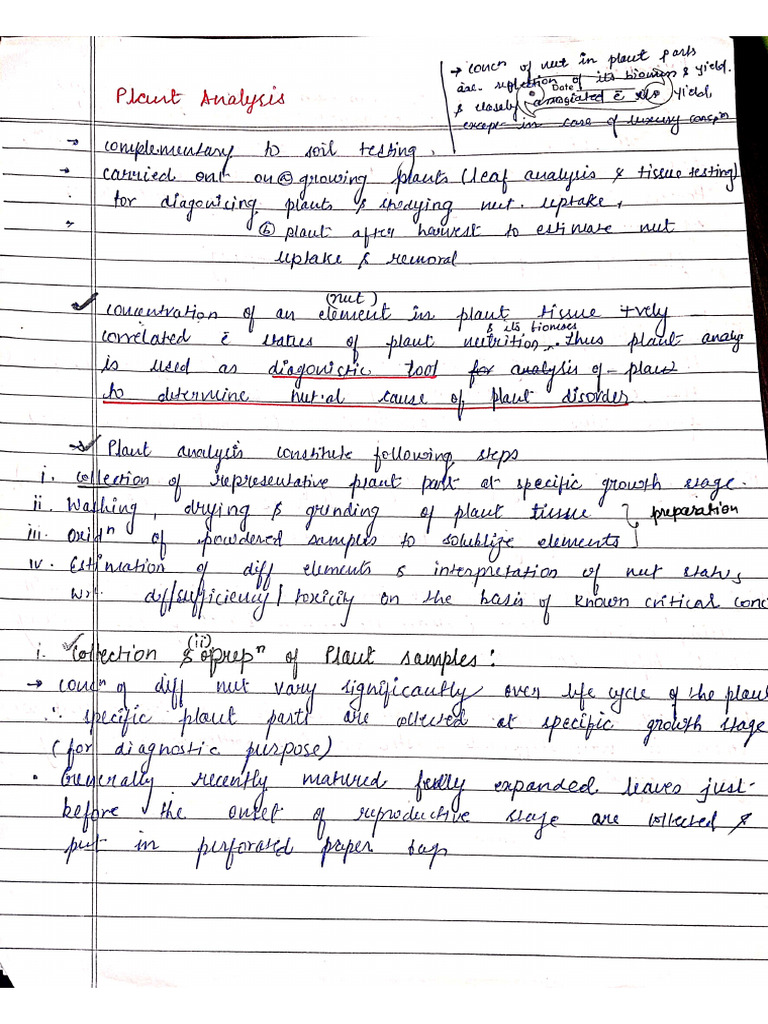 → concn of nut in plant parts
are reflection of its biomass & yield.
Date
& closely associated c̄ yield,
except in case of luxury concpn
Plant Analysis
→ complementary to soil testing.
→ carried out on ⓐ growing plants (leaf analysis & tissue testing)
for diagonising plants & studying nut. uptake,
ⓑ plant after harvest to estimate nut
uptake & removal
(nut)
✓ concentration of an element in plant tissue +vely
& its biomass
correlated c̄ status of plant nutrition. Thus plant analy
is used as diagonistic tool for analysis of plant
to determine nut.al cause of plant disorder.
→ Plant analysis constitute following steps
i. collection of representative plant part at specific growth stage.
ii. Washing, drying & grinding of plant tissue } preparation
iii. Oxidn of powdered samples to solublize elements
iv. Estimation of diff elements & interpretation of nut status
w.r.t. diff/sufficiency/toxicity on the basis of known critical conc
(ii)
i. ✓ Collection & prepn of Plant samples:
→ concn of diff nut vary significantly over life cycle of the plant
∴ specific plant parts are collected at specific growth stage
(for diagnostic purpose)
• Generally recently matured fully expanded leaves just
before the onset of reproductive stage are collected &
put in perforated paper bag